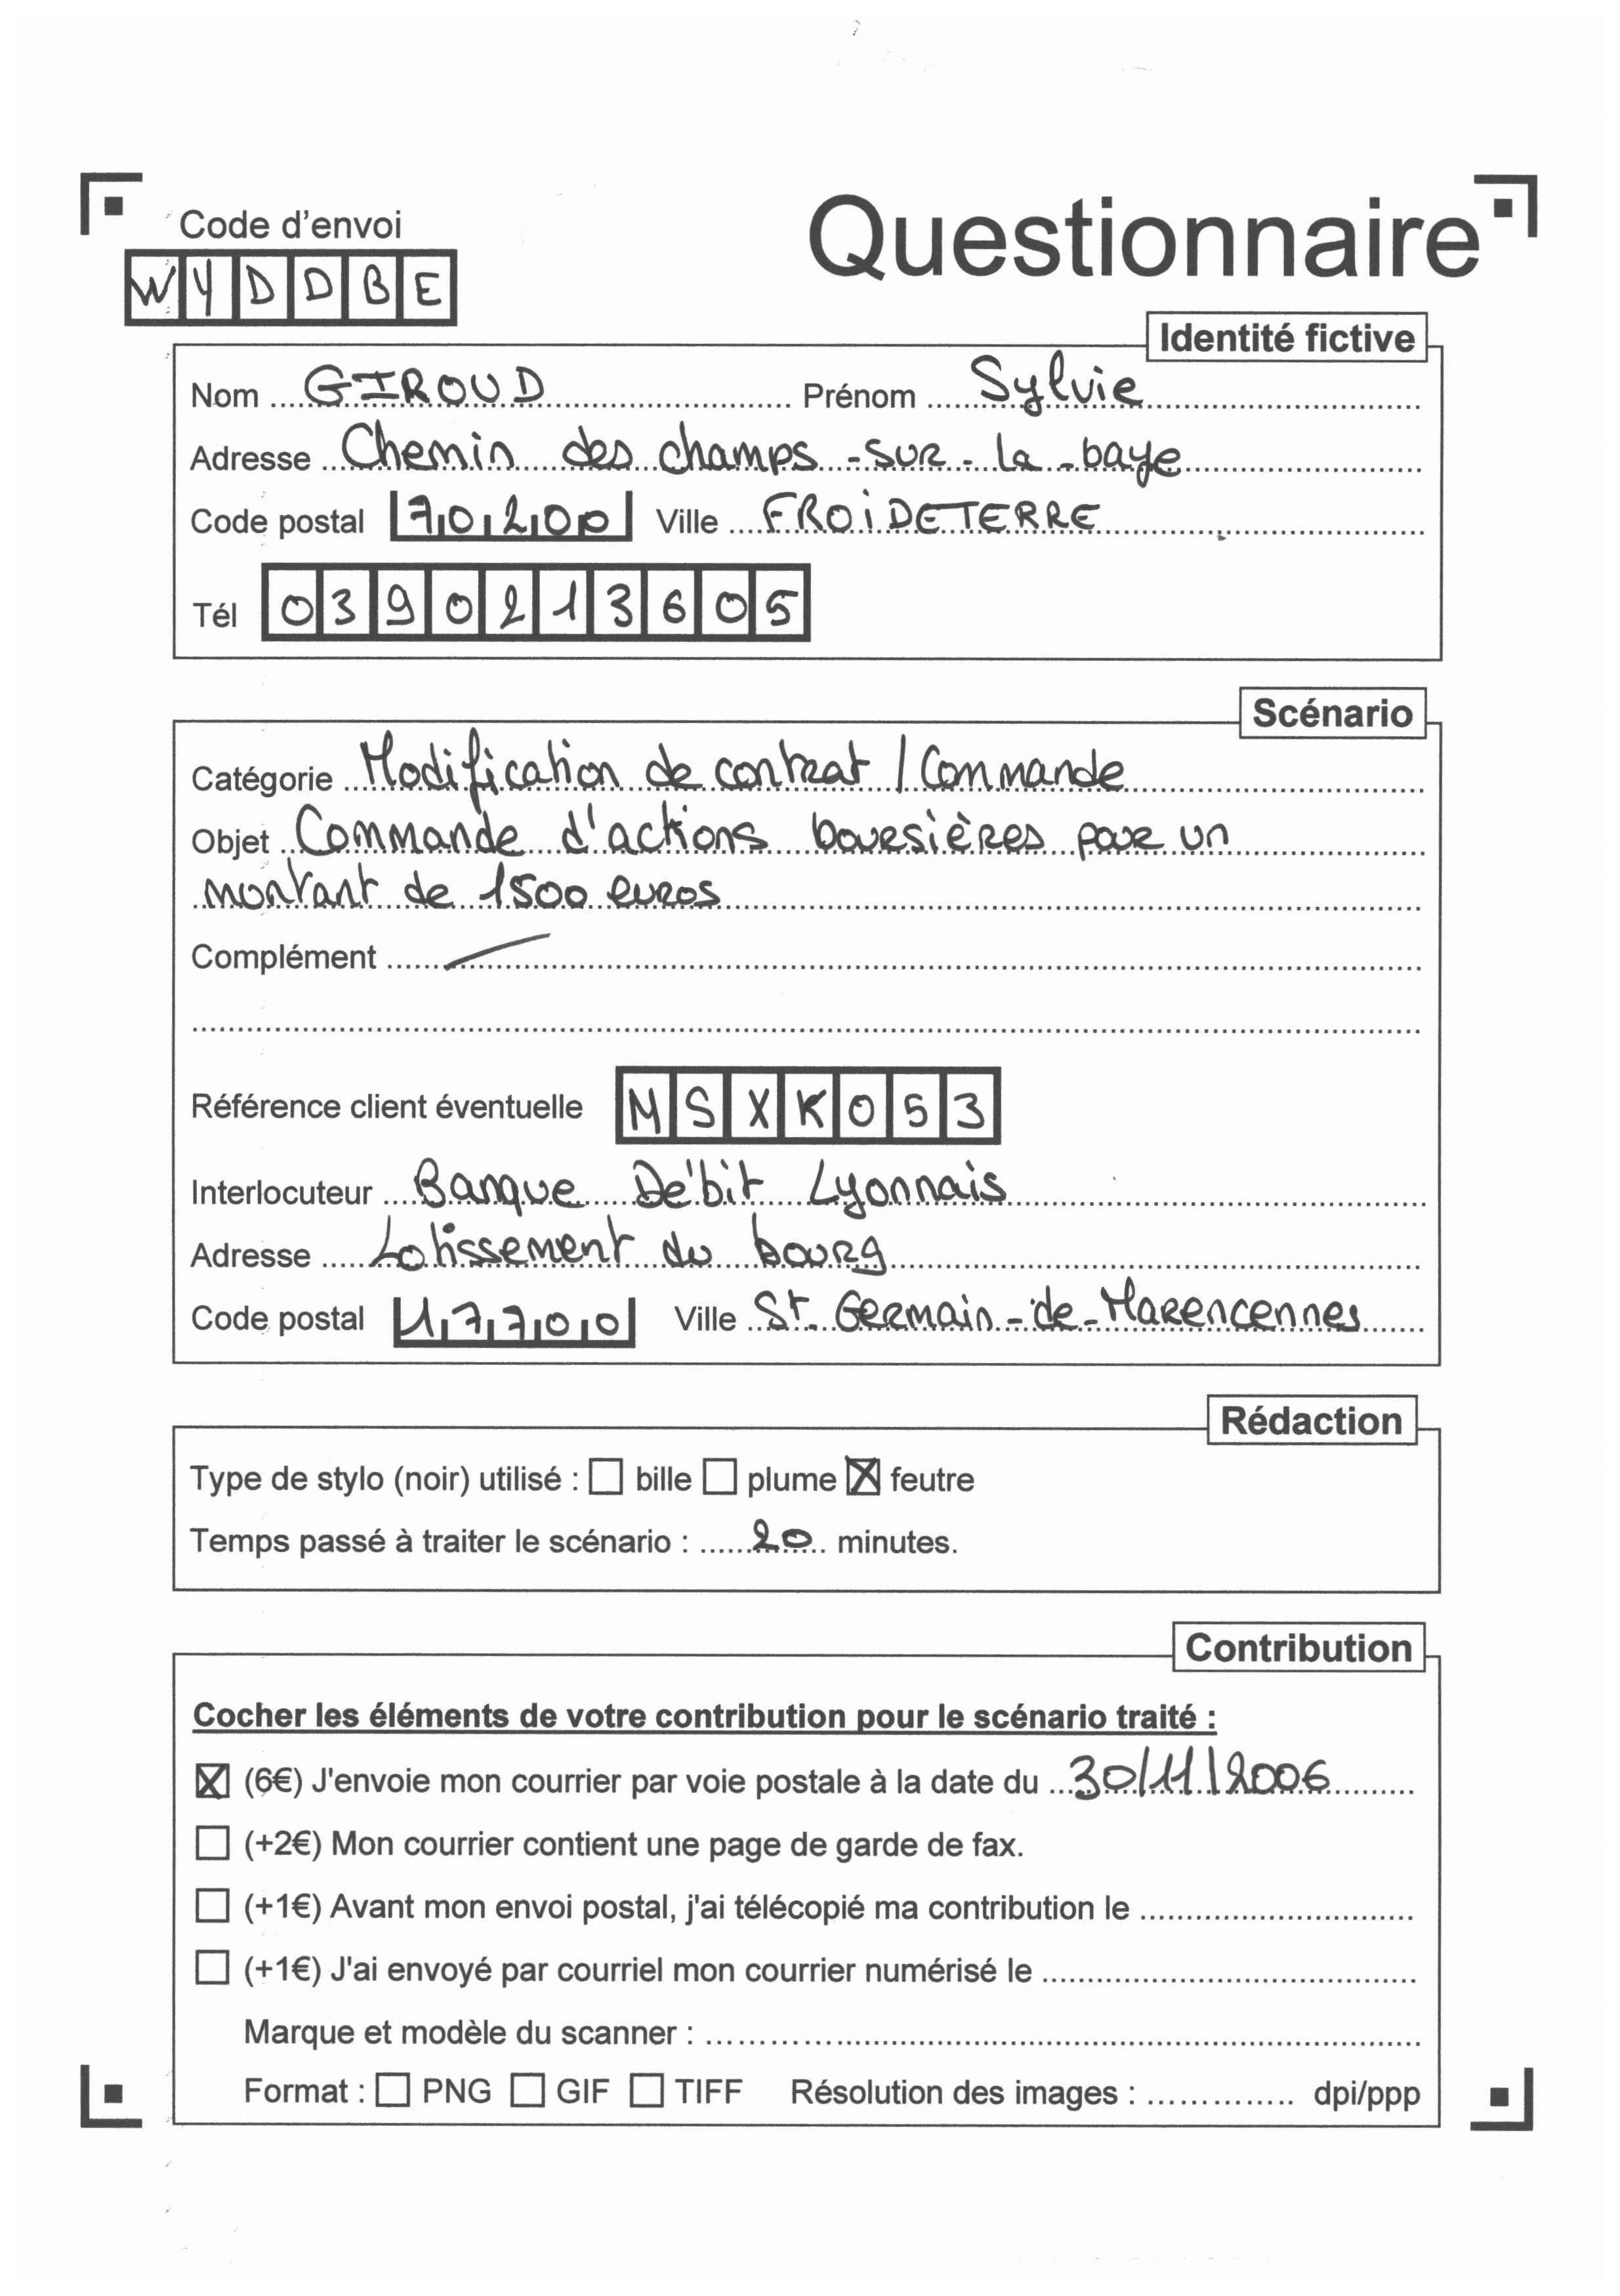 Code d'envoi
Questionnaire
WYDDBE
Identité fictive
Nom GIROUD Prénom Sylvie
Adresse Chemin des champs-sur-la-baye
Code postal 70200 Ville FROIDETERRE
Tél 0390213605
Scénario
Catégorie Modification de contrat / Commande
Objet Commande d'actions boursières pour un
montant de 1500 euros
Complément
Référence client éventuelle MSXK053
Interlocuteur Banque Débit Lyonnais
Adresse Lotissement du bourg
Code postal 17700 Ville St-Germain-de-Marencennes
Rédaction
Type de stylo (noir) utilisé : ☐ bille ☐ plume ☒ feutre
Temps passé à traiter le scénario : 20 minutes.
Contribution
Cocher les éléments de votre contribution pour le scénario traité :
☒ (6€) J'envoie mon courrier par voie postale à la date du 30/11/2006
☐ (+2€) Mon courrier contient une page de garde de fax.
☐ (+1€) Avant mon envoi postal, j'ai télécopié ma contribution le
☐ (+1€) J'ai envoyé par courriel mon courrier numérisé le
Marque et modèle du scanner :
Format : ☐ PNG ☐ GIF ☐ TIFF Résolution des images : dpi/ppp